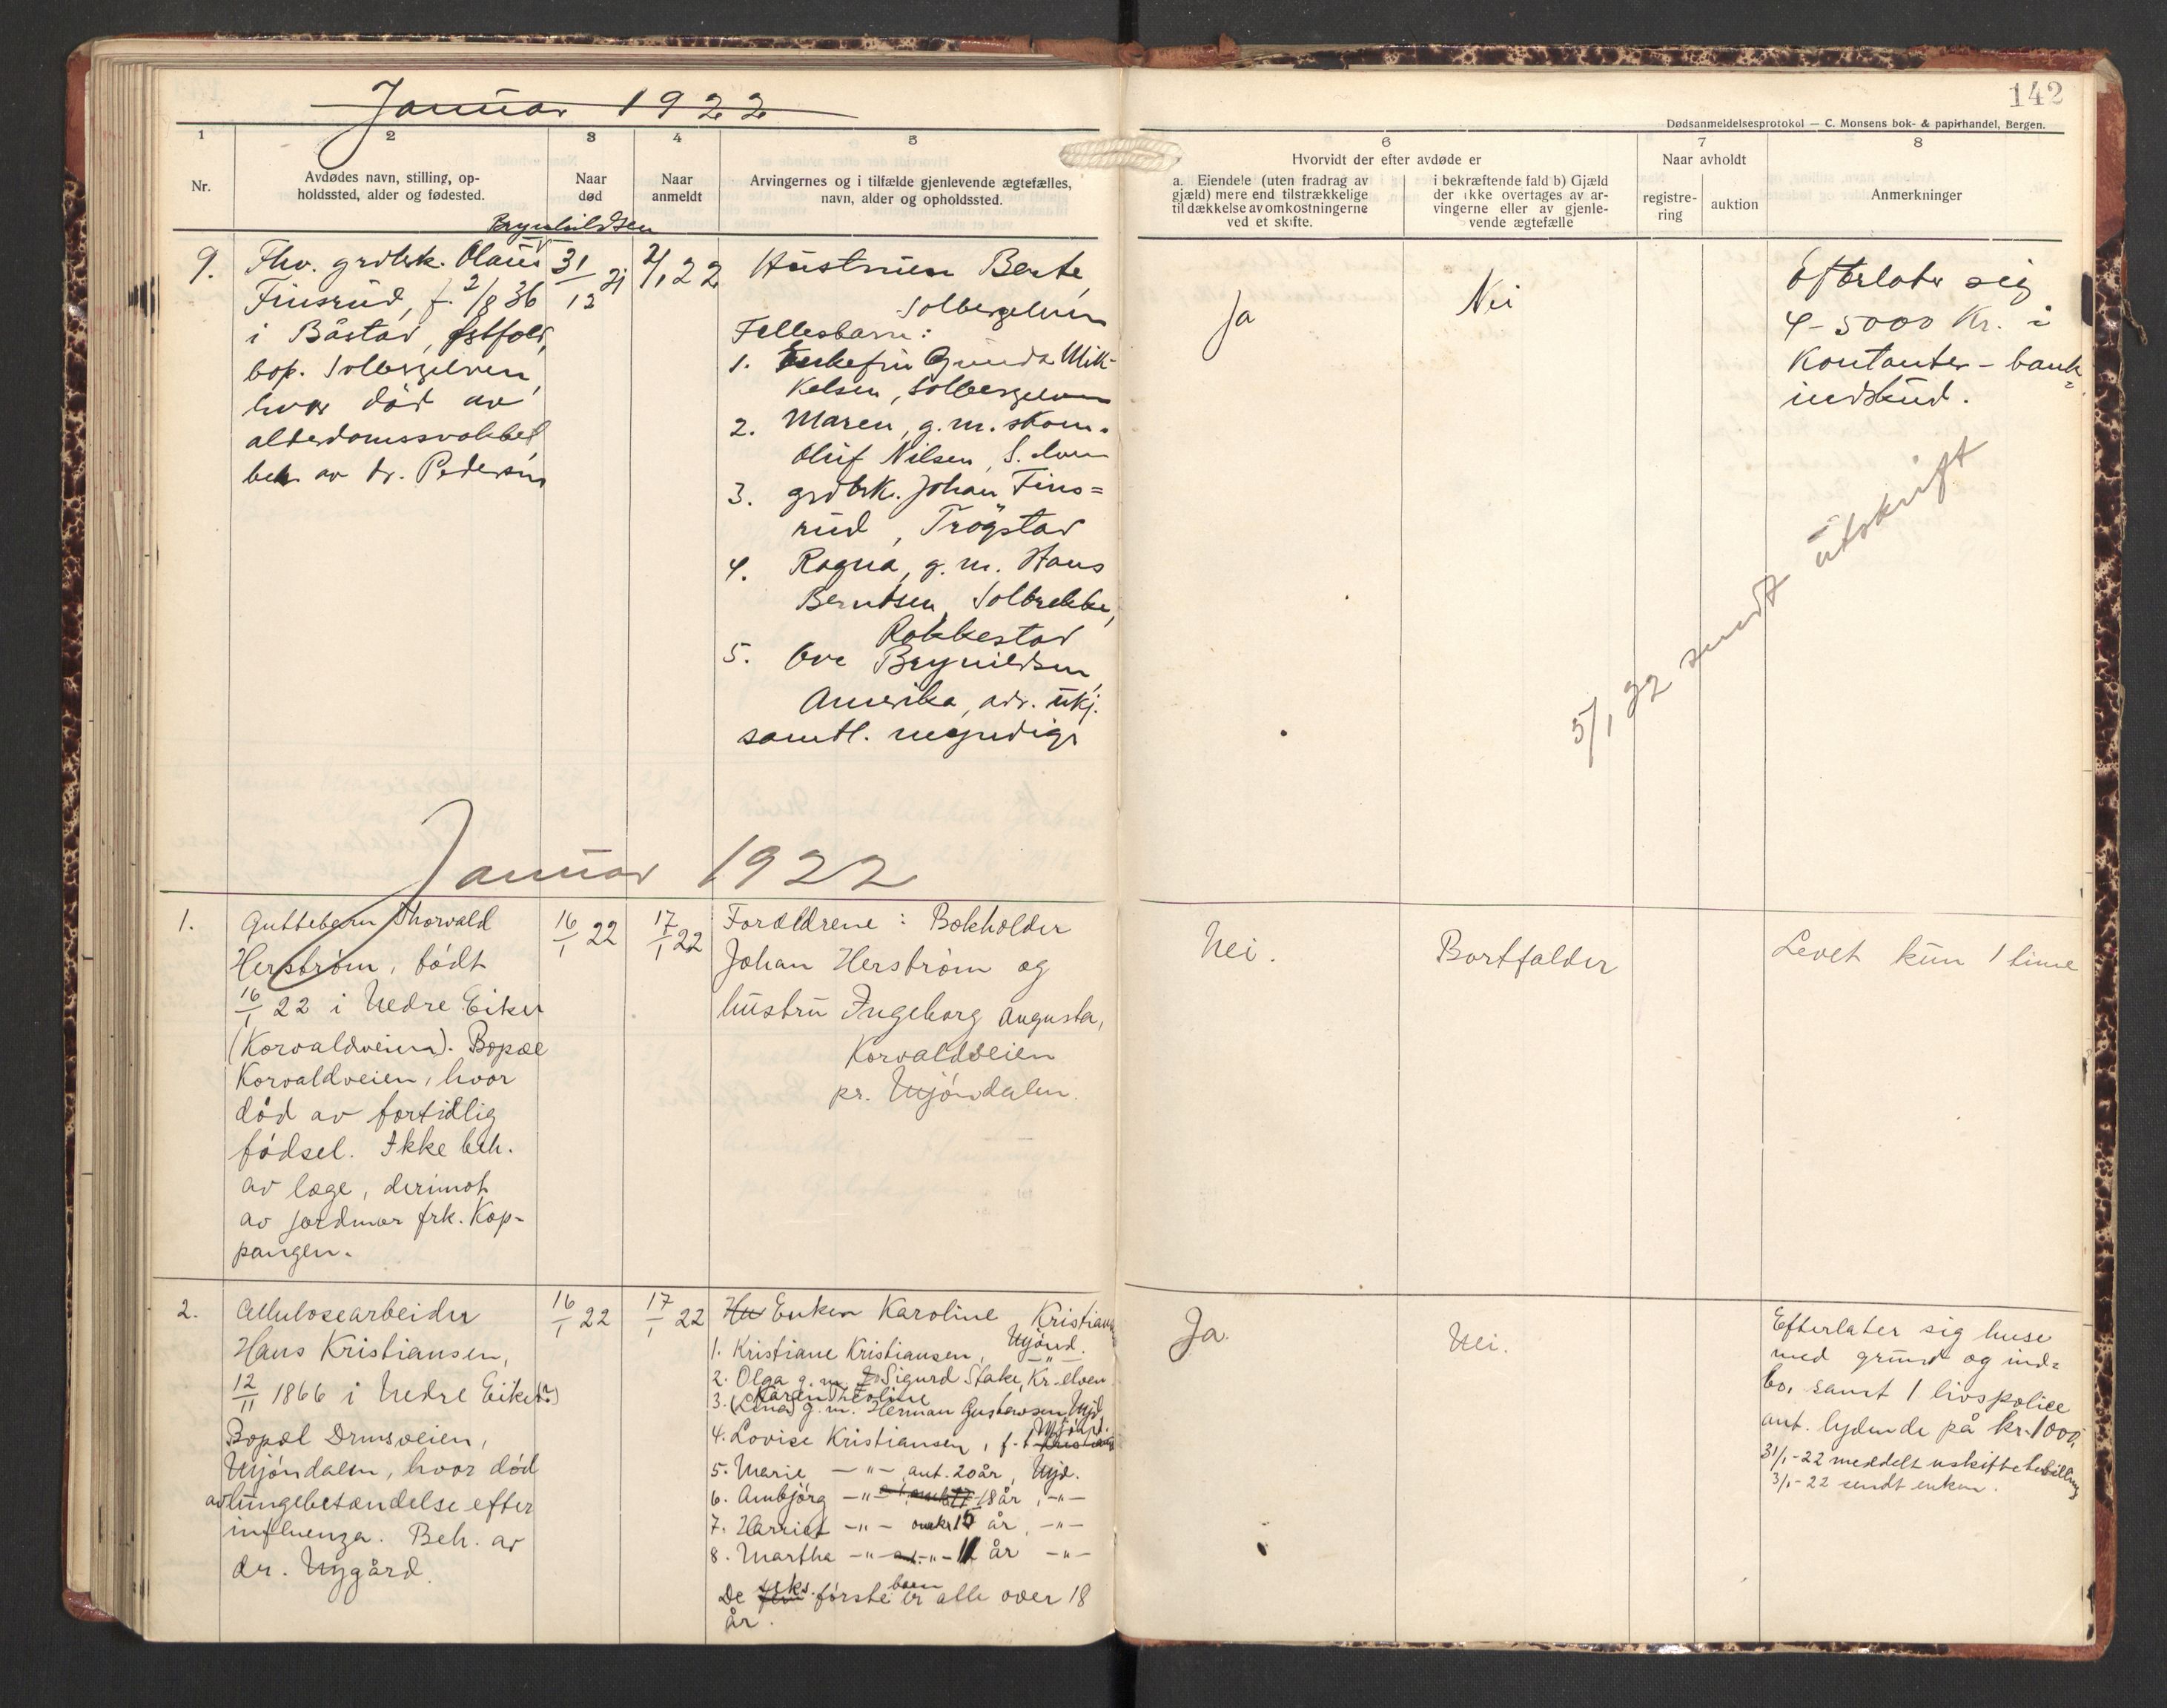 Januar 1922
142
Dødsanmeldelsesprotokol — C. Monsens bok- & papirhandel, Bergen.
1
2
3
4
5
6
7
8
Nr.
Avdødes navn, stilling, op-
holdssted, alder og fødested.
Naar
død
Naar
anmeldt
Arvingernes og i tilfælde gjenlevende ægtefælles,
navn, alder og opholdssted.
Hvorvidt der efter avdøde er
a. Eiendele (uten fradrag av
gjæld) mere end tilstrækkelige
til dækkelse av omkostningerne
ved et skifte.
i bekræftende fald b) Gjæld
der ikke overtages av ar-
vingerne eller av gjenle-
vende ægtefælle
Naar avholdt
registre-
ring
auktion
Anmerkninger
9.
Brynhildsen
Fhv. grdbrk. Olaus
Finsrud, f. 2/8 36
i Båstad, Østfold,
bop. Solbergelven,
hvor død av
alderdomssvakhet
beh. av dr. Pedersen
31/12 21
2/1 22
Hustruen Berte,
Solbergelven
Fellesbarn:
1. Enkefru Gunda Mik-
kelsen, Solbergelven
2. Maren, g. m. skom.
Oluf Nilsen, S.elven
3. grdbrk. Johan Fins=
rud, Trögstad
4. Ragna, g. m. Hans
Berntsen, Solbrekke,
Rakkestad
5. Ove Brynildsen,
Amerika, adr. ukj.
samtl. myndige
Ja
Nei
Efterlater sig
4-5000 Kr. i
Kontanter - bank=
indskud.
5/1 22 sendt utskrift
Januar 1922
1.
Guttebarn Thorvald
Herström, født
16/1 22 i Nedre Eiker
(Korvaldveien). Bopæl
Korvaldveien, hvor
död av fortidlig
födsel. Ikke beh.
av læge, derimot
av jordmor frk. Kop-
pangen.
16/1 22
17/1 22
Forældrene: Bokholder
Johan Herström og
hustru Ingeborg Augusta,
Korvaldveien
pr. Mjöndalen.
Nei.
Bortfalder
Levet kun 1 time
2.
Cellulosearbeider
Hans Kristiansen,
12/11 1866 i Nedre Eiker(?)
Bopæl Drmsveien,
Mjöndalen, hvor död
av lungebetændelse efter
influenza. Beh. av
dr. Nygård.
16/1 22
17/1 22
Hu Enken Karoline Kristiansen
Mjönd.
1. Kristiane Kristiansen, -"-
2. Olga g. m. Sigurd Stake, Kr.elven
Karen Theoline
3. (Lena) g. m. Herman Gustavsen Mjd.
4. Lovise Kristiansen, f. t. Mjönd.
5. Marie -"- ant. 20 år, Mjd.
6. Arnbjörg -"- 18 år, -"-
7. Harriet -"- 15 år, -"-
8. Martha -"- 11 år -"-
De seks første barn er alle over 18
år.
Ja.
Nei.
Efterlater sig huse
med grund og ind=
bo, samt 1 livspolice
ant. lydende på kr. 1000,
31/1-22 meddelt uskiftebevilling
3/1-22 sendt enken.